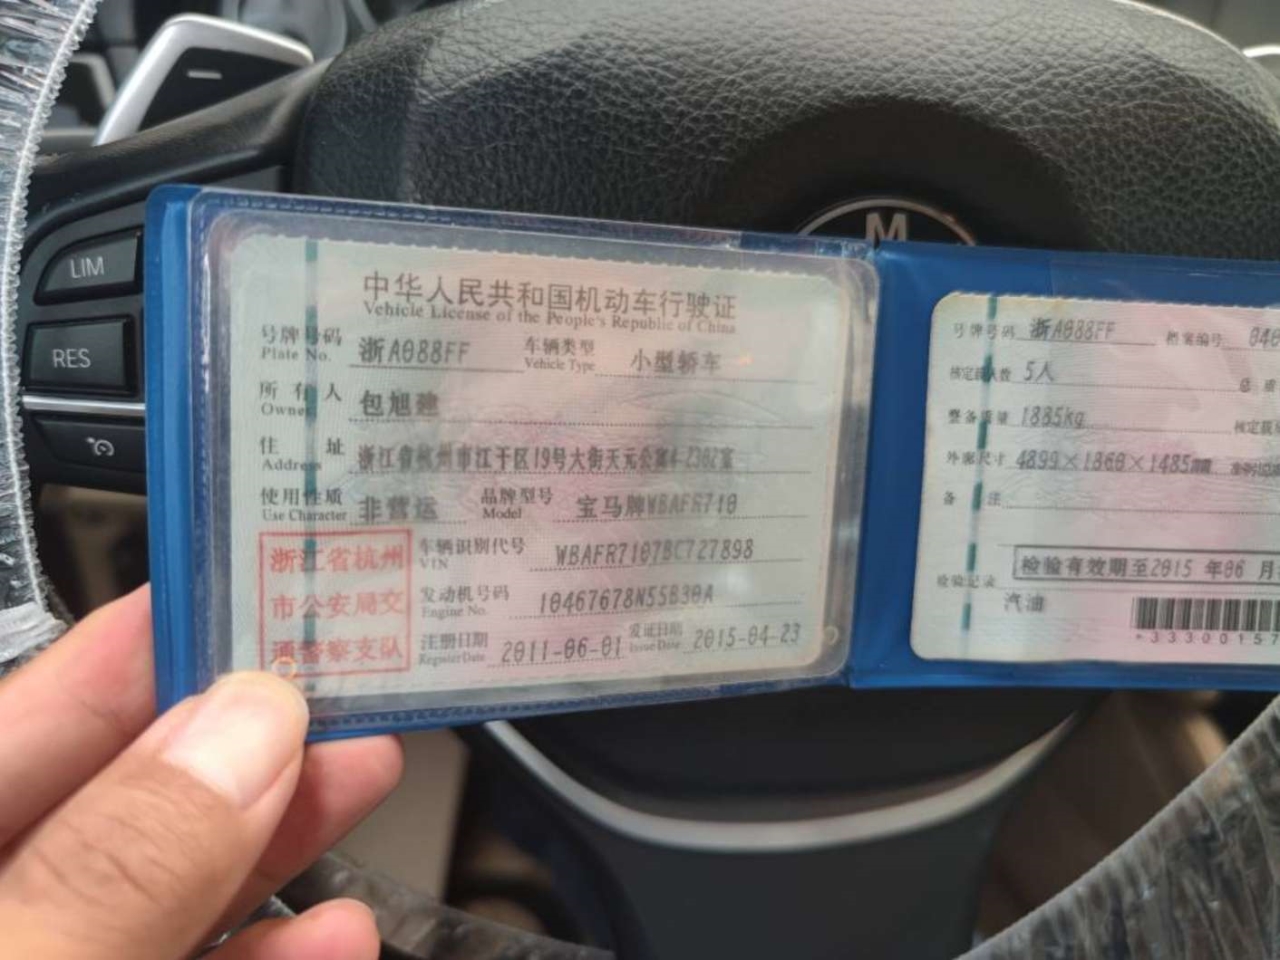 LIM
RES
M
中华人民共和国机动车行驶证
Vehicle License of the People's Republic of China
号牌号码 浙A088FF 车辆类型 小型轿车
Plate No. Vehicle Type
所有人 包旭建
Owner
住址 浙江省杭州市江干区19号大街天元公寓4-2302室
Address
使用性质 非营运 品牌型号 宝马牌WBAFR710
Use Character Model
浙江省杭州
市公安局交
通警察支队
车辆识别代号 WBAFR7107BC727898
VIN
发动机号码 10467678N55B30A
Engine No.
注册日期 2011-06-01 发证日期 2015-04-23
Register Date Issue Date
号牌号码 浙A088FF 档案编号 040
核定载人数 5人 总质
整备质量 1885kg 核定载质
外廓尺寸 4899×1860×1485mm
备注
检验记录 检验有效期至2015年06月
汽油
*33300157